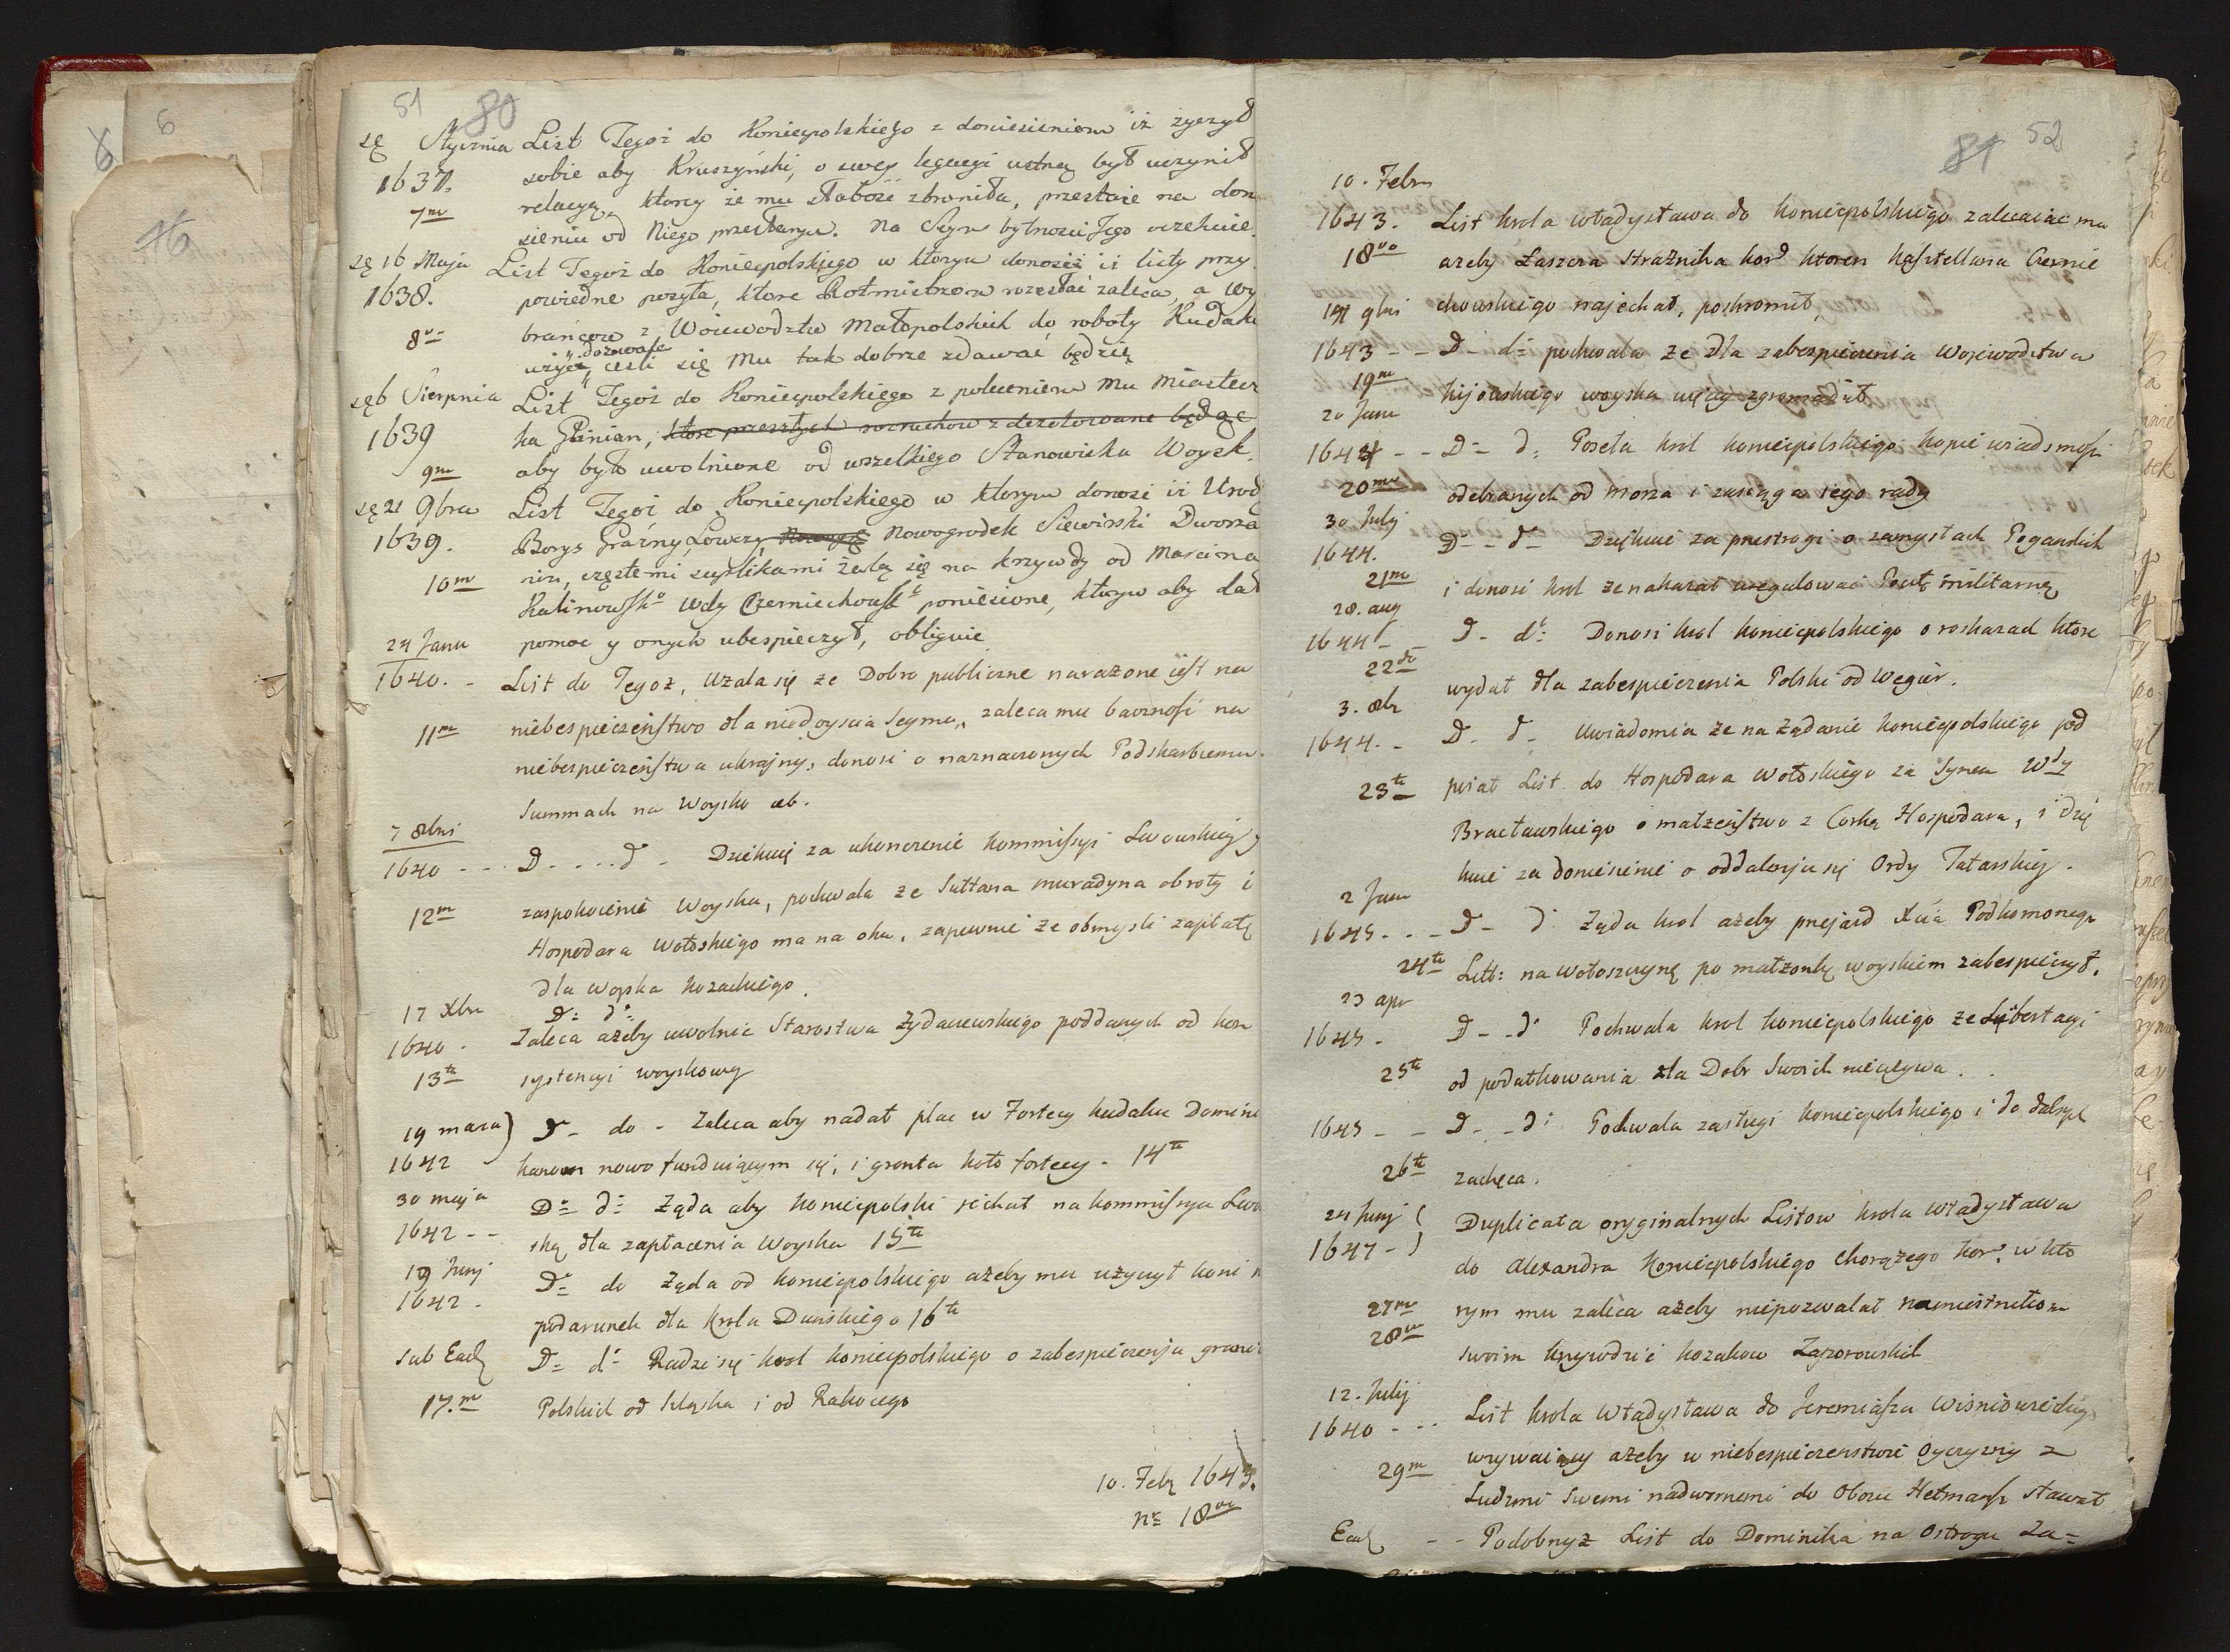 6
6
16
51 80
sę Stycznia List Tegoż do Koniecpolskiego z doniesieniem iż życzył
1637. sobie aby Kruszyński, o swey legacyi ustną był uczynił
7mo relacyą, ktorey że mu słabość zbroniła, przestaie na don
sieniu od Niego przesłanym. Na Seym bytności Jego oczekuie.
sę 16 Maja List Tegoż do Koniecpolskiego w ktorym donosi iż listy przy
1638. powiedne posyła, ktore Rotmistrzom rozesłać zaleca, a wy
8vo brańcow z Woiewodztw Małopolskich do roboty Kudaku
użyć dozwala, ieśli się Mu tak dobrze zdawać będzie
sę 6 Sierpnia List Tegoż do Koniecpolskiego z poleceniem Mu Miastecz
1639 ka Glinian, ktore przeszłych rozruchow zdezolowane będąc
9no aby było uwolnione od wszelkiego Stanowiska Woysk.
sę 21 9bra List Tegoż do Koniecpolskiego w ktorym donosi iż Urod
1639. Borys Grażny Łowczy Nowogrodek Siewirski Dworza
10mo nin, częstemi suplikami żalą się na krzywdy od Marcina
Kalinowskº Wdy Czerniechowskº poniesione, ktorym aby dał
24 Janu pomoc y onych ubespieczył, obliguie
1640. - List do Tegoż, Użala się ze Dobro publiczne narażone iest na
11mo niebespieczeństwo dla niedoyscia Seymu, zaleca mu baczność na
niebespieczeństwa ukrajny, donosi o naznaczonych Podskarbiemu
Summach na Woysko etc.
7 8bris
1640 - - - D - - - - dº - Dziękuię za ukonczenie kommissyi Lwowskiey y
12mo zaspokoienie Woyska, pochwala ze Sułtana muradyna obroty i
Hospodara Wołoskiego ma na oku, zapewnie że obmysli zapłatę
dla woyska kozackiego.
17 Xbra D: dº:
1640. Zaleca ażeby uwolnić Starostwa Żydaczewskiego poddanych od kon
13tio systencyi woyskowey
19 marca) D - do - Zaleca aby nadał plac w Fortecy kudaku Domini
1642 kanom nowo funduiącym się, i gronta koło fortecy - 14to
30 maja Dº d: Żąda aby Koniecpolski iechał na kommissya Lwo
1642 - - ską dla zapłacenia Woyska 15to
19 Junj Dº do Żąda od koniecpolskiego ażeby mu użyczył koni n
1642. podarunek dla krola Duńskiego 16to
sub Ead D: d: Radzi się krol koniecpolskiego o zabespieczenia granic
17.mo Polskich od Sląska i od Rakocego
10. Feb 1643.
Nº 18vo
81 52
10. Febr
1643. List krola władysława do koniecpolskiego zalecaiąc mu
18vo ażeby Łaszcza Strażnika kor ktoren kasztellana Czernie
14 9bris chowskiego najechał, poskromił,
1643 - - D - d: pochwala że dla zabezpieczenia Wojewodztwa
19no kijowskiego woyska więcey zgromadził
20 Janu
1644 - - D: d: Poseła krol koniecpolskiego kopie wiadomości
20mo odebranych od morza i zasięga iego rady
30 Julij
1644. D: - dº Dziękuie za prestrogi o zamysłach Pogańskich
21mo i donosi krol że nakazał uregulować Pocztę militarną
28. aug
1644 - D - dº: Donosi krol koniecpolskiego o roskazach ktore
22do wydał dla zabespieczenia Polski od Węgier.
3. 8br
1644. - D - d - Uwiadomia że na żądanie koniecpolskiego pod
23tio pisał List do Hospodara wołoskiego za Synem Wdy
Bracławskiego o małżeństwo z Corką Hospodara, i dzię
kuie za doniesienie o oddaleniu się Ordy Tatarskiey.
2 Janu
1645 - - - D - dº Żąda krol ażeby prejazd Xcia Podkomorzego
24to Litt: na Wołoszczynę po małżonkę woyskiem zabespieczył.
23 apr
1645. D - - dº Pochwala krol koniecpolskiego że Libertacyi
25to od podatkowania dla Dobr Swoich nieużywa.
1645 - - D - - dº Pochwala zasługi koniecpolskiego i do dalszych
26to zachęca.
24 Junj Duplicata oryginalnych Listow krola władysława
1647 - do Alexandra Koniecpolskiego Chorążego kor. w kto
27mo rym mu zaleca ażeby niepozwalał namiestnikom
28vo swoim krzywdzić kozakow Zaporowskich
12. Julij
1640 - - - List krola Władysława do Jeremiasza Wiśniowieckiego
29no wzywaiący ażeby w niebespieczenstwie Oyczyzny z
Ludzmi Swemi nadwornemi do obozu Hetmansk stawał
Ead - - Podobnyż List do Dominika na Ostrogu Za=